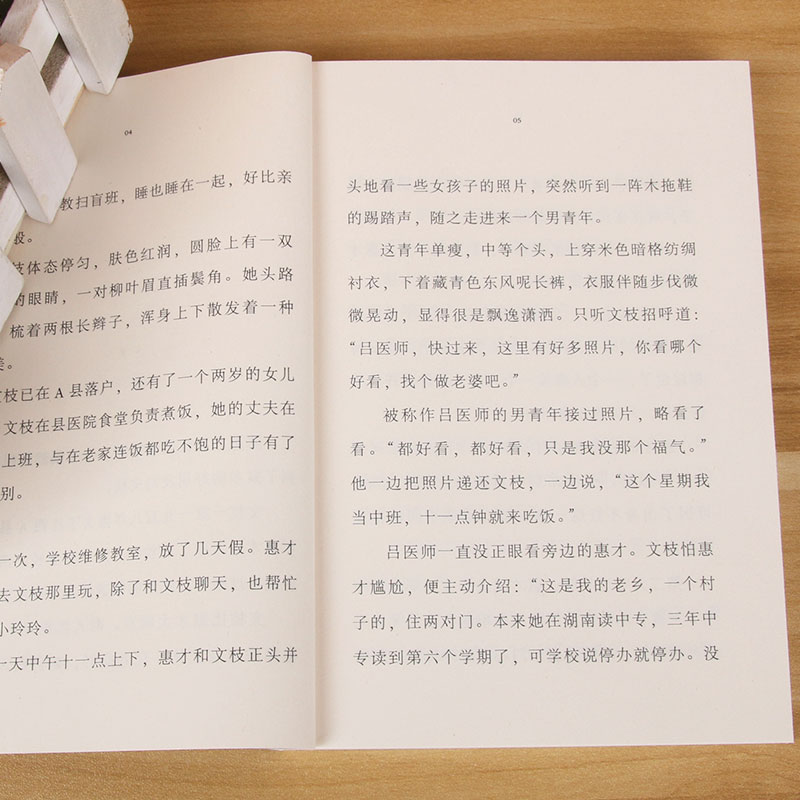 04
教扫盲班，睡也睡在一起，好比亲
般。
枝体态停匀，肤色红润，圆脸上有一双
的眼睛，一对柳叶眉直插鬓角。她头路
梳着两根长辫子，浑身上下散发着一种
美。
文枝已在 A 县落户，还有了一个两岁的女儿
文枝在县医院食堂负责煮饭，她的丈夫在
上班，与在老家连饭都吃不饱的日子有了
别。
一次，学校维修教室，放了几天假。惠才
去文枝那里玩，除了和文枝聊天，也帮忙
小玲玲。
一天中午十一点上下，惠才和文枝正头并
05
头地看一些女孩子的照片，突然听到一阵木拖鞋
的踢踏声，随之走进来一个男青年。
这青年单瘦，中等个头，上穿米色暗格纺绸
衬衣，下着藏青色东风呢长裤，衣服伴随步伐微
微晃动，显得很是飘逸潇洒。只听文枝招呼道：
“吕医师，快过来，这里有好多照片，你看哪个
好看，找个做老婆吧。”
被称作吕医师的男青年接过照片，略看了
看。“都好看，都好看，只是我没那个福气。”
他一边把照片递还文枝，一边说，“这个星期我
当中班，十一点钟就来吃饭。”
吕医师一直没正眼看旁边的惠才。文枝怕惠
才尴尬，便主动介绍：“这是我的老乡，一个村
子的，住两对门。本来她在湖南读中专，三年中
专读到第六个学期了，可学校说停办就停办。没